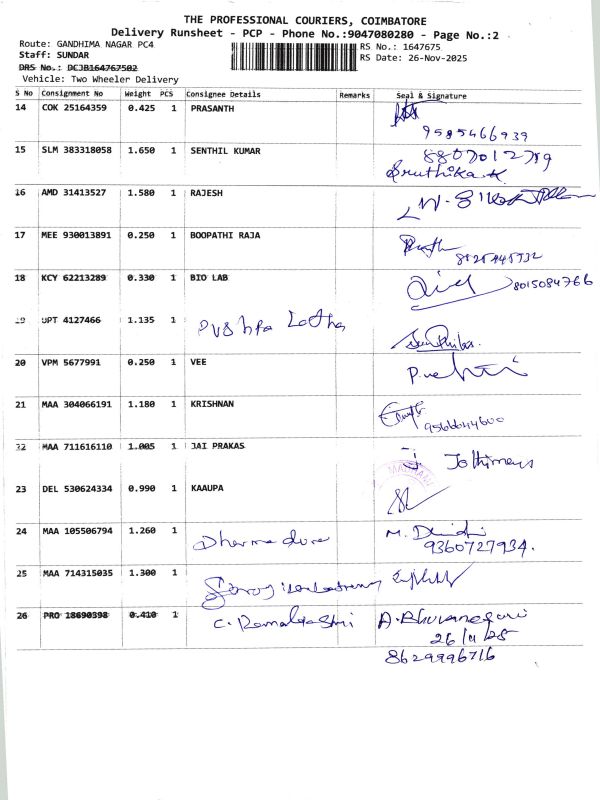 THE PROFESSIONAL COURIERS, COIMBATORE
Delivery Runsheet - PCP - Phone No.:9047080280 - Page No.:2
Route: GANDHIMA NAGAR PC4
RS No.: 1647675
Staff: SUNDAR
RS Date: 26-Nov-2025
DRS No.: DCJB164767502
Vehicle: Two Wheeler Delivery
S No Consignment No Weight PCS Consignee Details Remarks Seal & Signature
14 COK 25164359 0.425 1 PRASANTH
9585466939
15 SLM 383318058 1.650 1 SENTHIL KUMAR
Sruthika.K
16 AMD 31413527 1.580 1 RAJESH
17 MEE 930013891 0.250 1 BOOPATHI RAJA
18 KCY 62213289 0.330 1 BIO LAB 8015084766
19 UPT 4127466 1.135 1 Pushpa Latha
20 VPM 5677991 0.250 1 VEE
21 MAA 304066191 1.180 1 KRISHNAN
9566644600
22 MAA 711616110 1.005 1 JAI PRAKAS
23 DEL 530624334 0.990 1 KAAUPA
24 MAA 105506794 1.260 1 Dharmadurai M.
9360727934.
25 MAA 714315035 1.300 1
26 PRO 18690398 0.410 1 A.Bhuvaneswari
26/11/25
8629996716